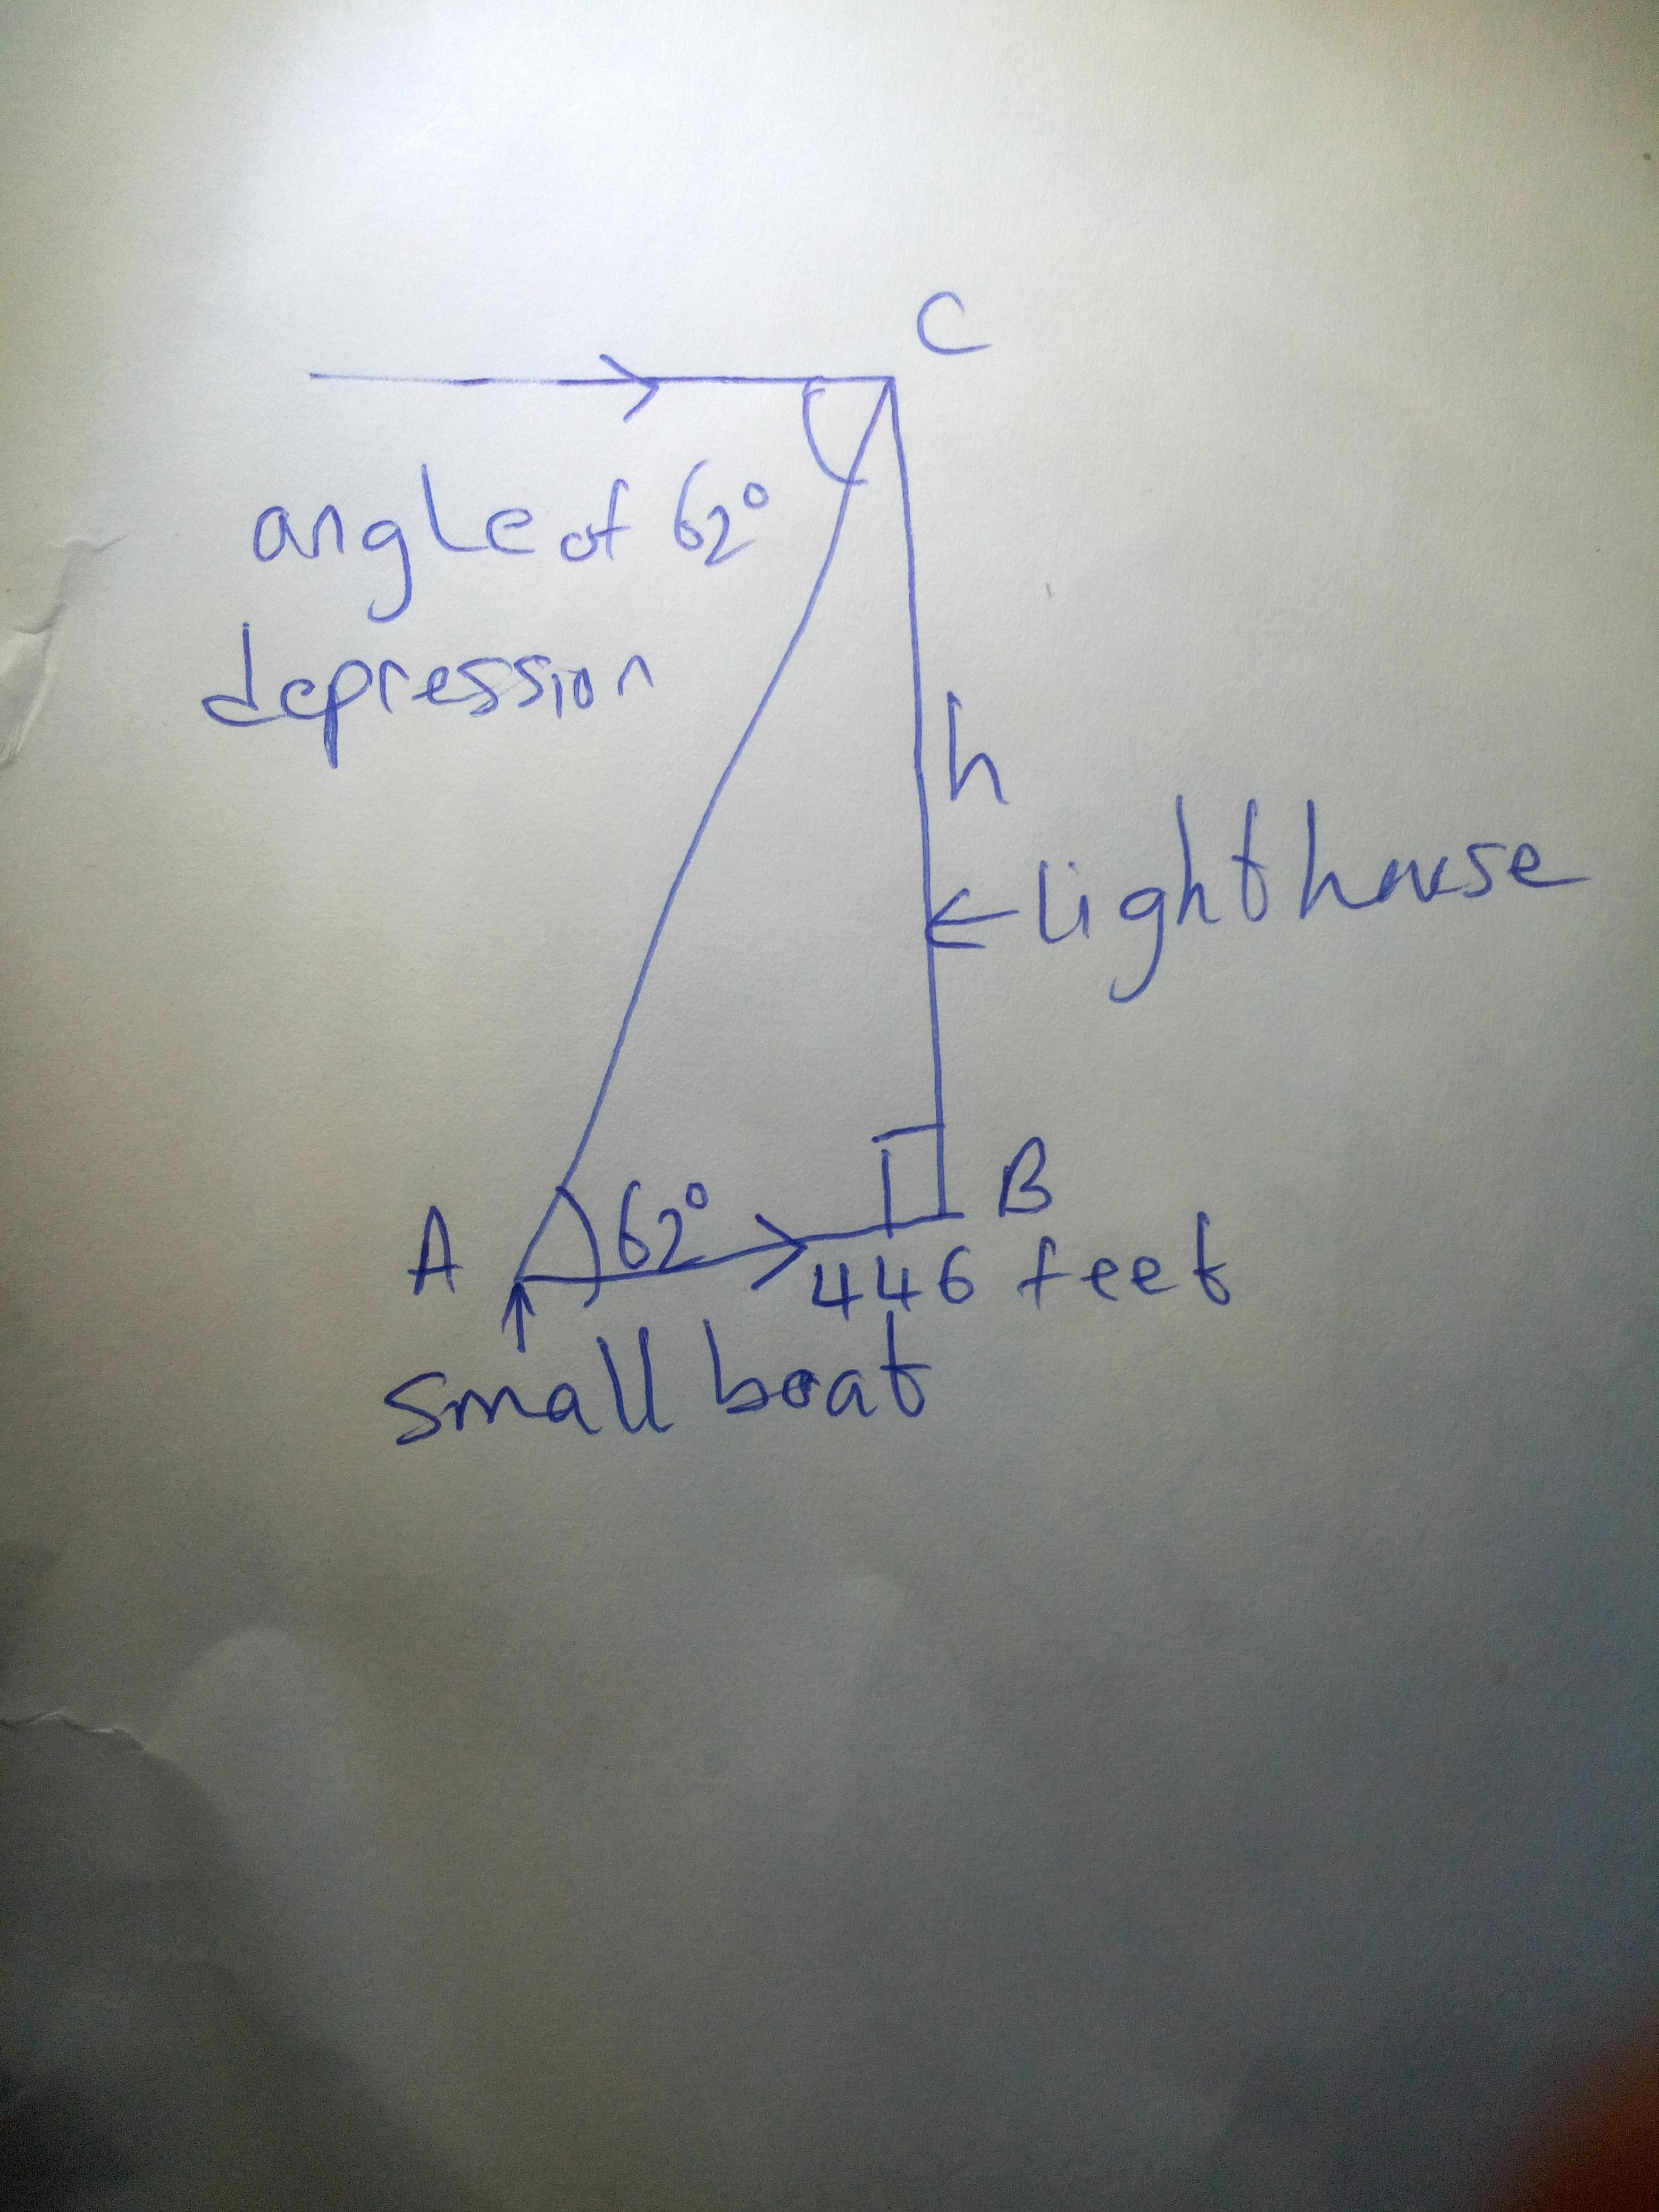 C
angle of 62°
depression
h
lighthouse
A 62° B
446 feet
small boat